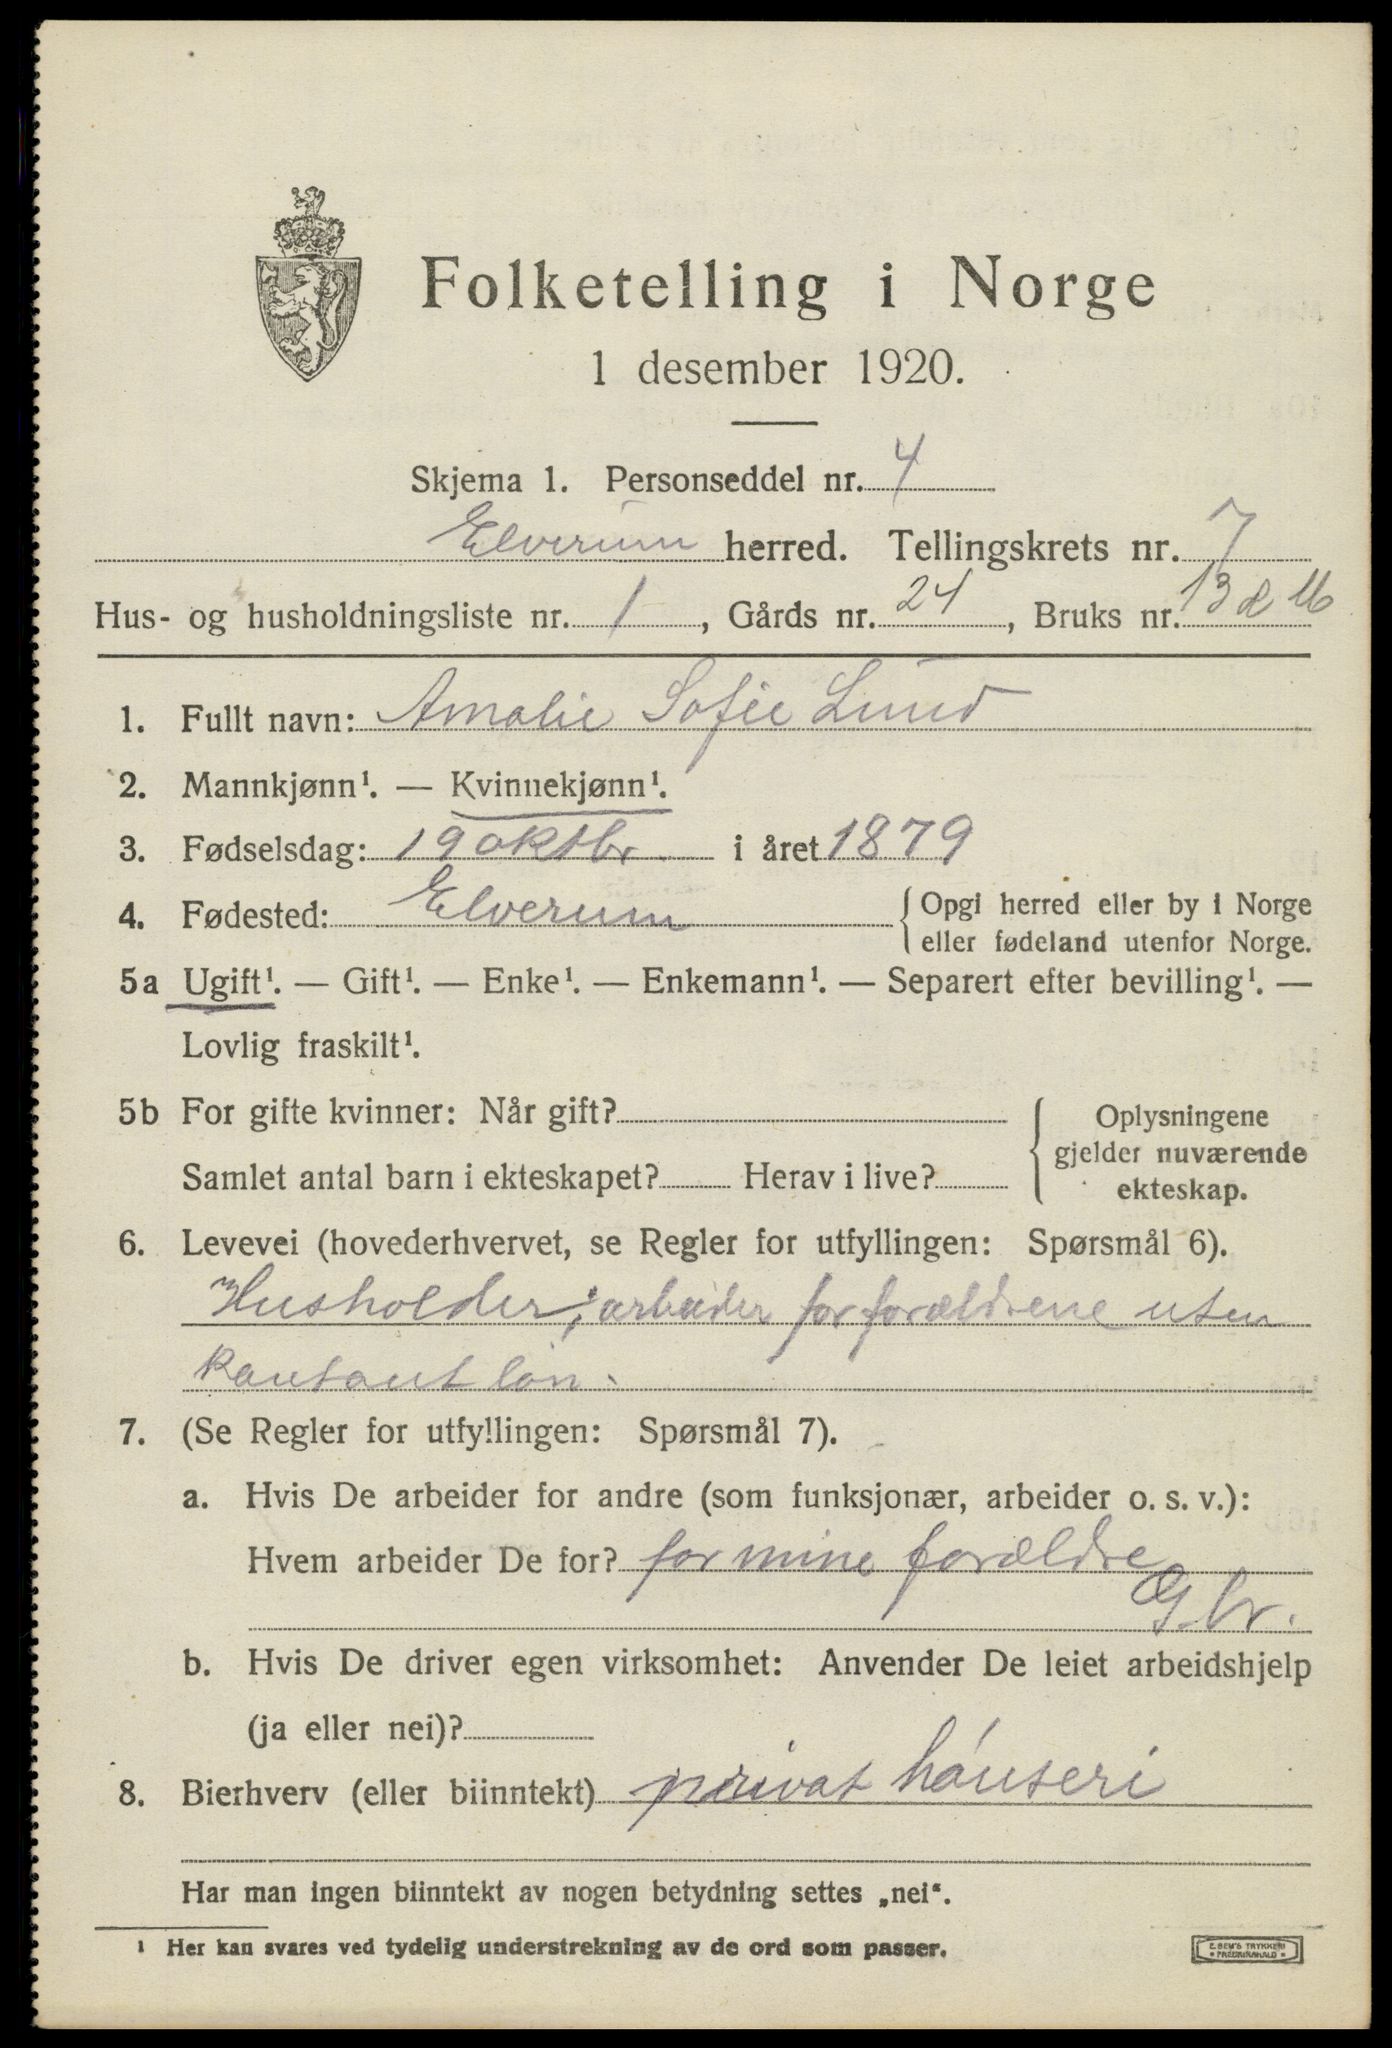 Folketelling i Norge
1 desember 1920.
Skjema 1. Personseddel nr. 4
Elverum herred. Tellingskrets nr. 7
Hus- og husholdningsliste nr. 1, Gårds nr. 24, Bruks nr. 13
1. Fullt navn: Amalie Sofie Lund
2. Mannkjønn¹. — Kvinnekjønn¹.
3. Fødselsdag: 19 oktbr. i året 1879
4. Fødested: Elverum {Opgi herred eller by i Norge
eller fødeland utenfor Norge.
5a Ugift¹. — Gift¹. — Enke¹. — Enkemann¹. — Separert efter bevilling¹. —
Lovlig fraskilt¹.
5b For gifte kvinner: Når gift? { Oplysningene
gjelder nuværende
Samlet antal barn i ekteskapet? Herav i live?
ekteskap.
6. Levevei (hovederhvervet, se Regler for utfyllingen: Spørsmål 6).
Husholder; arbeider for forældrene uten
kontant løn.
7. (Se Regler for utfyllingen: Spørsmål 7).
a. Hvis De arbeider for andre (som funksjonær, arbeider o. s. v.):
Hvem arbeider De for? for mine forældre
Gbr.
b. Hvis De driver egen virksomhet: Anvender De leiet arbeidshjelp
(ja eller nei)?
8. Bierhverv (eller biinntekt) privat hønseri
Har man ingen biinntekt av nogen betydning settes „nei“.
¹ Her kan svares ved tydelig understrekning av de ord som passer.
E. SEM'S TRYKKERI
• FREDRIKSHALD •